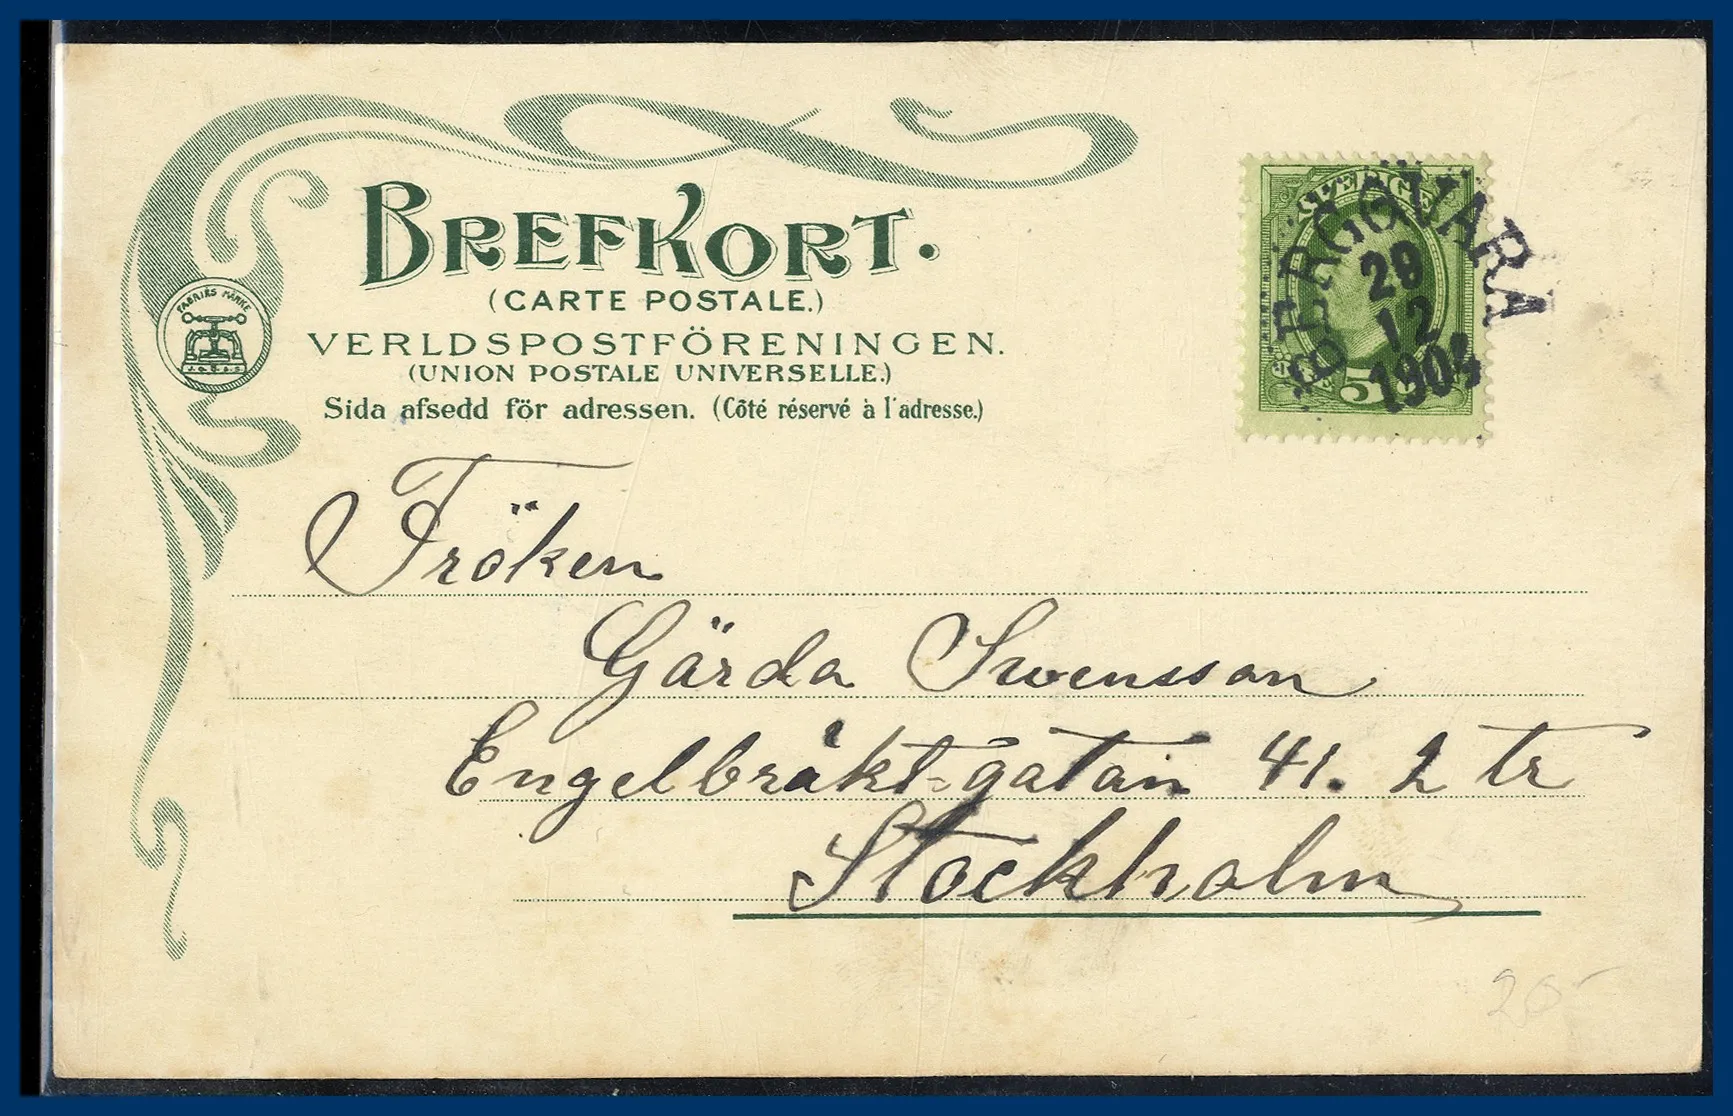 BREFKORT.
(CARTE POSTALE.)
VERLDSPOSTFÖRENINGEN.
(UNION POSTALE UNIVERSELLE.)
Sida afsedd för adressen. (Côté réservé à l'adresse.)
FABRIKS MÄRKE
SVERIGE
5
BERGQVARA
29
12
1904
Fröken
Gärda Swensson
Engelbråkt-gatan 41. 2 tr
Stockholm
20-